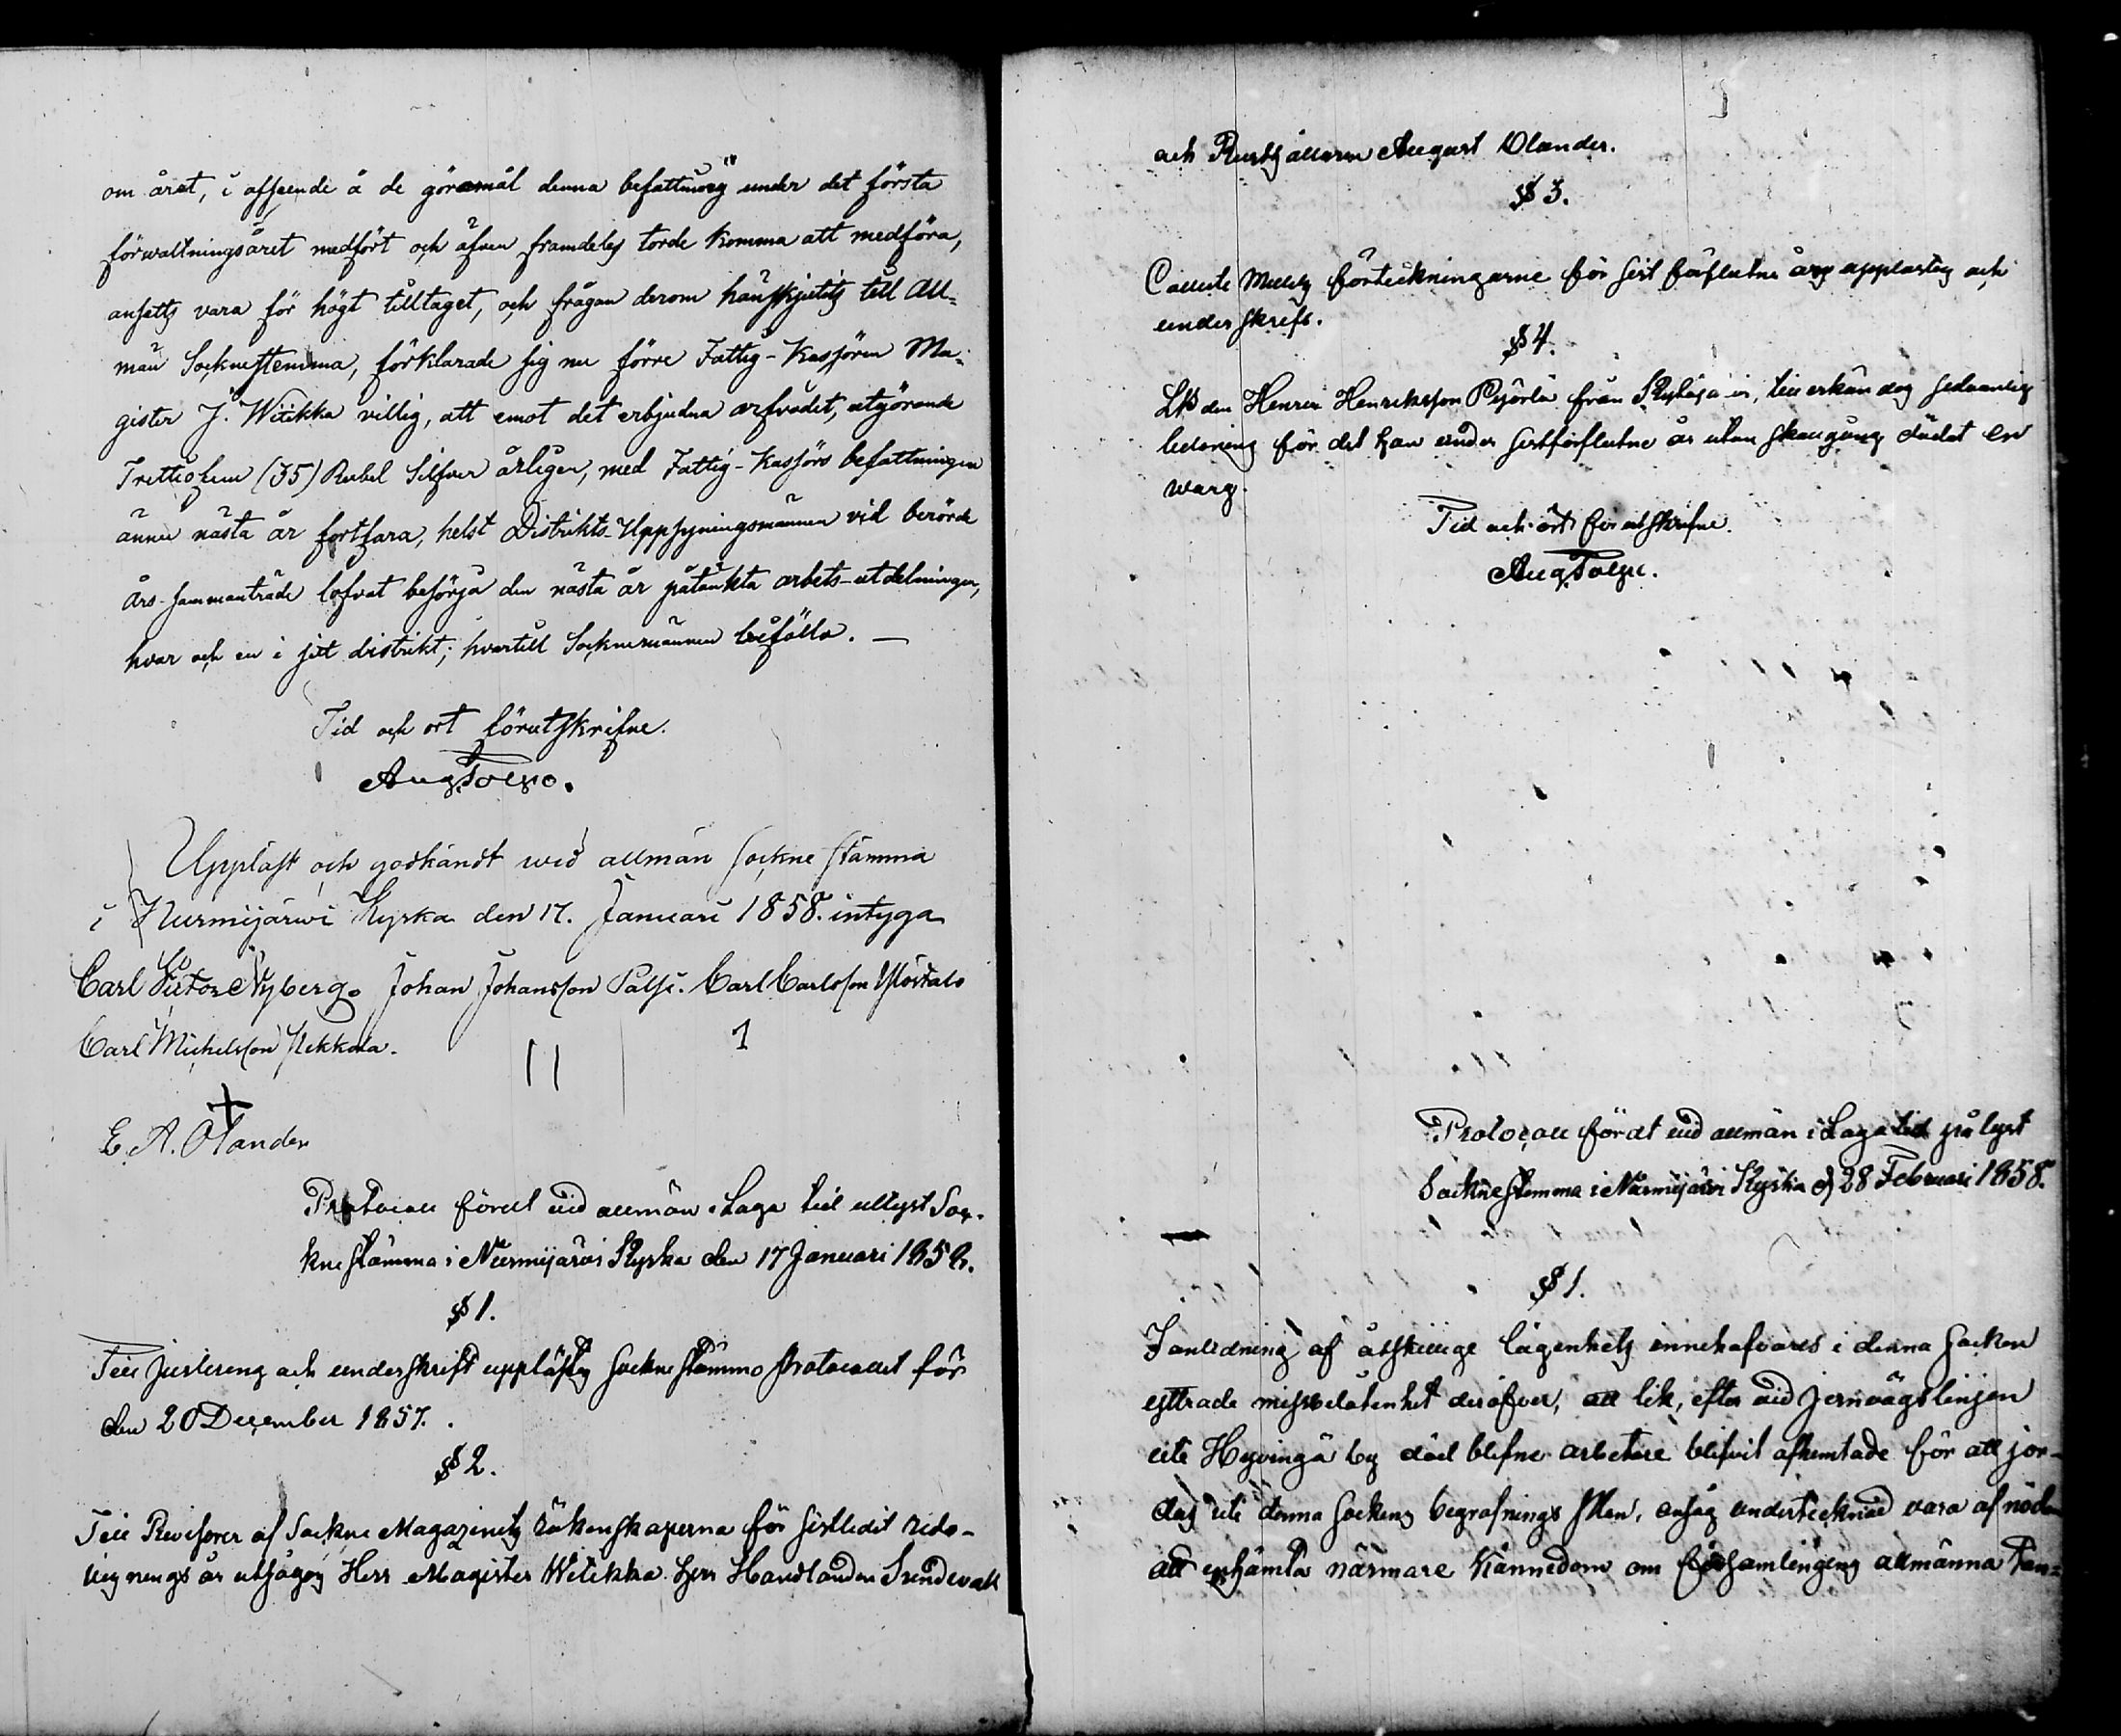 om året, i afseende å de göromål denna befattning under det första
förwaltningsåret medfört och äfven framdeles torde komma att medföra,
ansetts vara för högt tilltaget, och frågan derom hänskjutits till All-
män Socknestemma, förklarade sig nu förre Fattig-Kassören Ma-
gister J. Witikka villig, att emot det erbjudna arfvodet, utgörande
Trettiofem (35) Rubel Silfver årligen, med Fattig-Kassörs befattningen
ännu nästa år fortfara, helst Distrikts-Uppsyningsmännen vid berörde
års-sammanträde lofvat besörja den nästa år påtänkta arbets-utdelningen,
hvar och en i sitt distrikt; hvartill Socknemännen biföllo. —
Tid och ort förutskrifne.
Aug Tolpo.
Uppläst och godkändt wid allmän sockne stämma
i Nurmijärwi Kyrka den 17. Januari 1858. intyga
Carl Victor Nyberg. Johan Johansson Palsi. Carl Carlsson Ylöstalo
Carl Michelsson Pekkola.
E. A. Olander
Protocoll fördt vid allmän i Laga tid utlyst Soc-
kne stämma i Nurmijärvi Kyrka den 17 Januari 1858.
§ 1.
Till justering och underskrift upplästes Sockne stämmo Protocollet för
den 20 December 1857.
§ 2.
Till Revisorer af Sockne Magazinets räkenskaperna för sistledit redo-
visnings år utsågos Herr Magister Witikka Herr Handlanden Sundvall
och Rusthållaren August Olander.
§ 3.
Collecte Medels förteckningarne för sist förflutne år upplästes och
underskrefs.
§ 4.
Lds dren Henric Henriksson Pejorla från Kytäjä by, tillerkändes sedvanlig
belöning för det han under sistförflutne år utan skallgång dödat en
warg.
Tid och ort förutskrifne.
Aug Tolpo.
Protocoll fördt vid allmän i Laga tid pålyst
Sockne stemma i Nurmijärvi Kyrka d. 28 Februari 1858.
§ 1.
I anledning af åtskillige lägenhets innehafvares i denna Socken
yttrade missbelåtenhet deröfver, att lik, efter vid jernvägslinjen
uti Hyvingä by död blefne arbetare blifvit afhemtade för att jor-
das uti denna Sockens begrafnings plan, ansåg undertecknad vara af nöden
att inhämta närmare kännedom om församlingens allmänna tan-